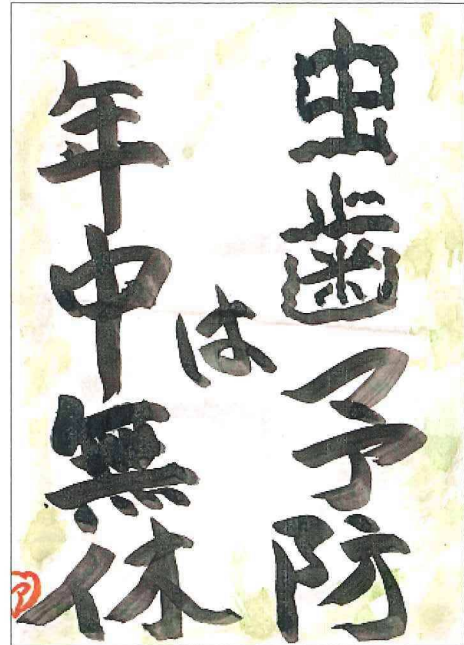 虫歯予防
は
年中無休